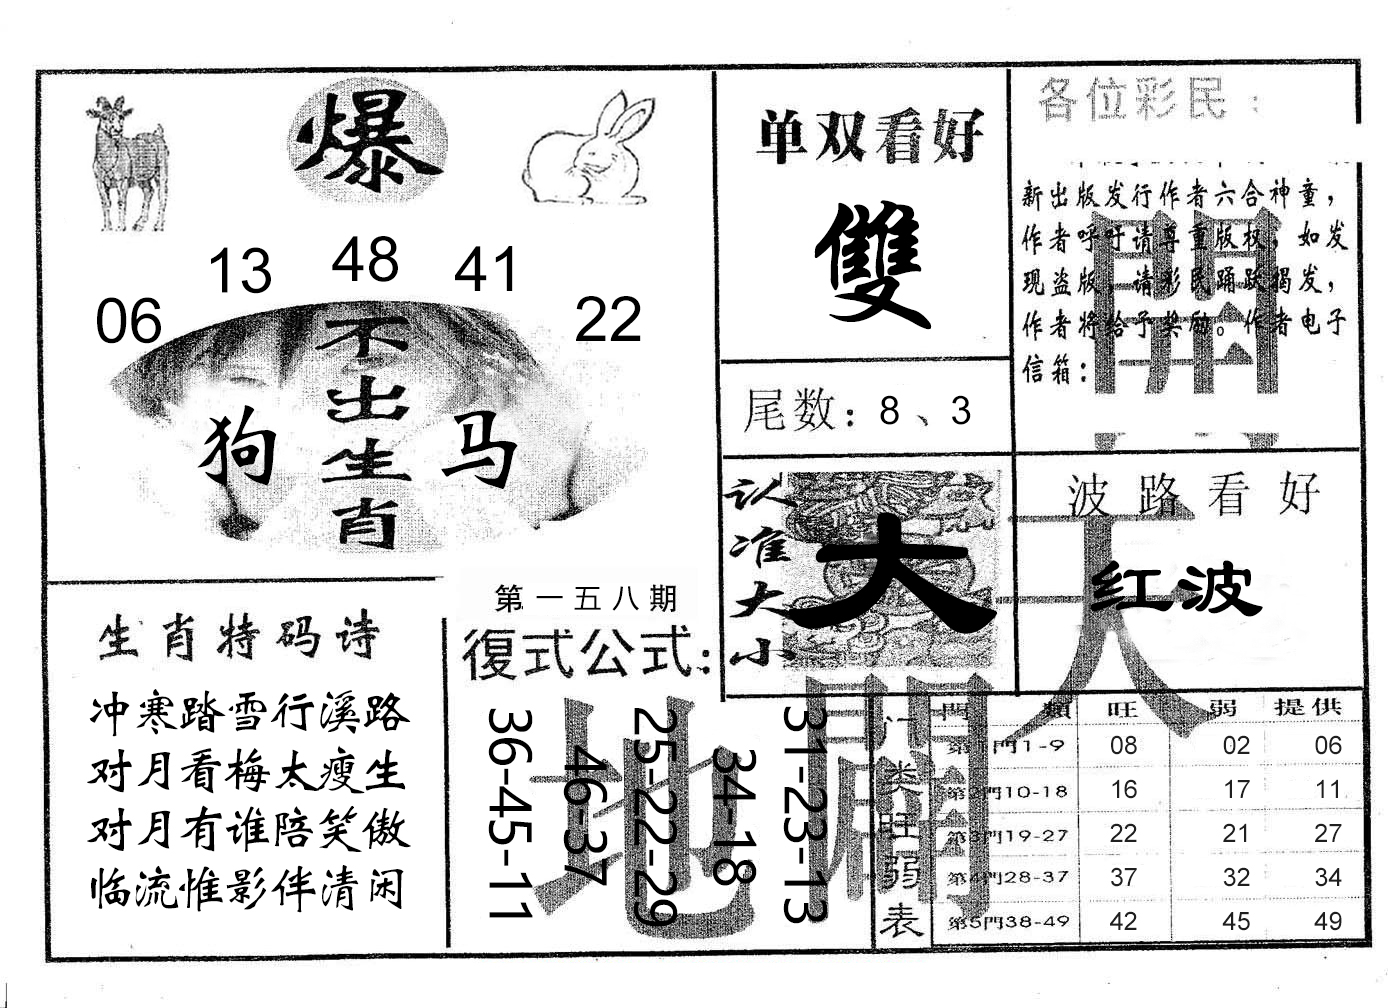 爆
06 13 48 41 22
不出生肖
狗 马
单双看好
雙
尾数：8、3
各位彩民：
新出版发行作者六合神童，
作者呼吁请尊重版权，如发
现盗版，请彩民踊跃揭发，
作者将给予奖励。作者电子
信箱：
認准大小
大
波路看好
红波
天
開
生肖特码诗
冲寒踏雪行溪路
对月看梅太瘦生
对月有谁陪笑傲
临流惟影伴清闲
第一五八期
復式公式：
36-45-11
46-37
25-22-29
34-18
31-23-13
地
開
门类旺弱表
門 類 旺 弱 提供
第1門1-9 08 02 06
第2門10-18 16 17 11
第3門19-27 22 21 27
第4門28-37 37 32 34
第5門38-49 42 45 49